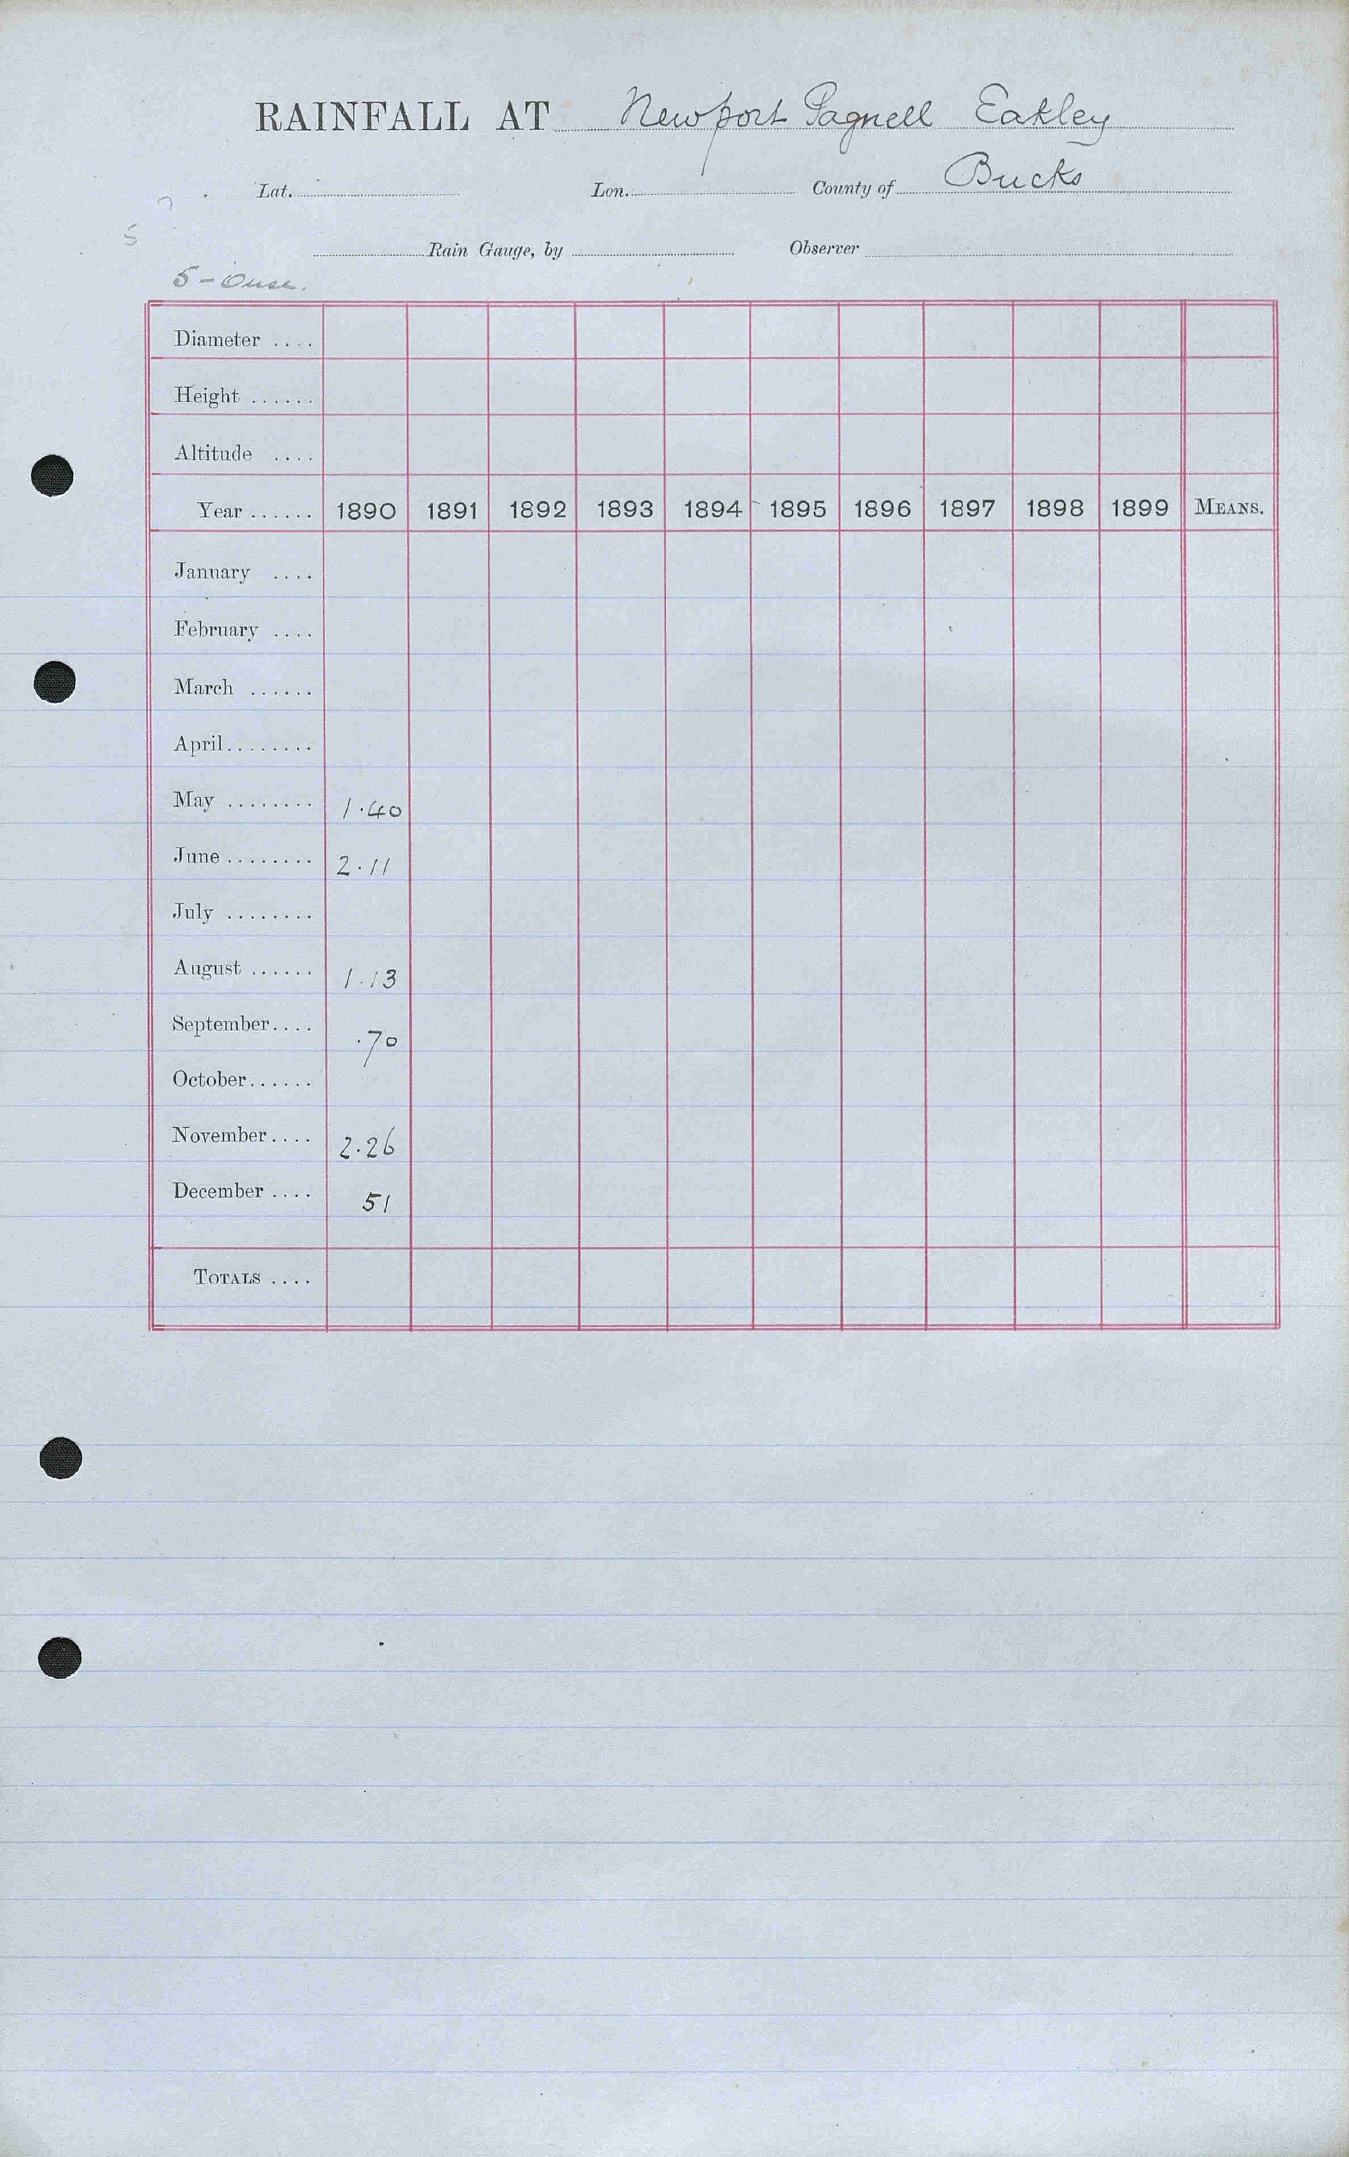 RAINFALL AT Newport Pagnell Eakley
Lat. Lon. County of Bucks
5
Rain Gauge, by Observer
5 - Ouse.
Diameter ....
Height ......
Altitude ....
Year ...... 1890 1891 1892 1893 1894 1895 1896 1897 1898 1899 MEANS.
January ....
February ....
March ......
April ........
May ........ 1.40
June ........ 2.11
July ........
August ...... 1.13
September .... .70
October ......
November .... 2.26
December .... 51
TOTALS ....